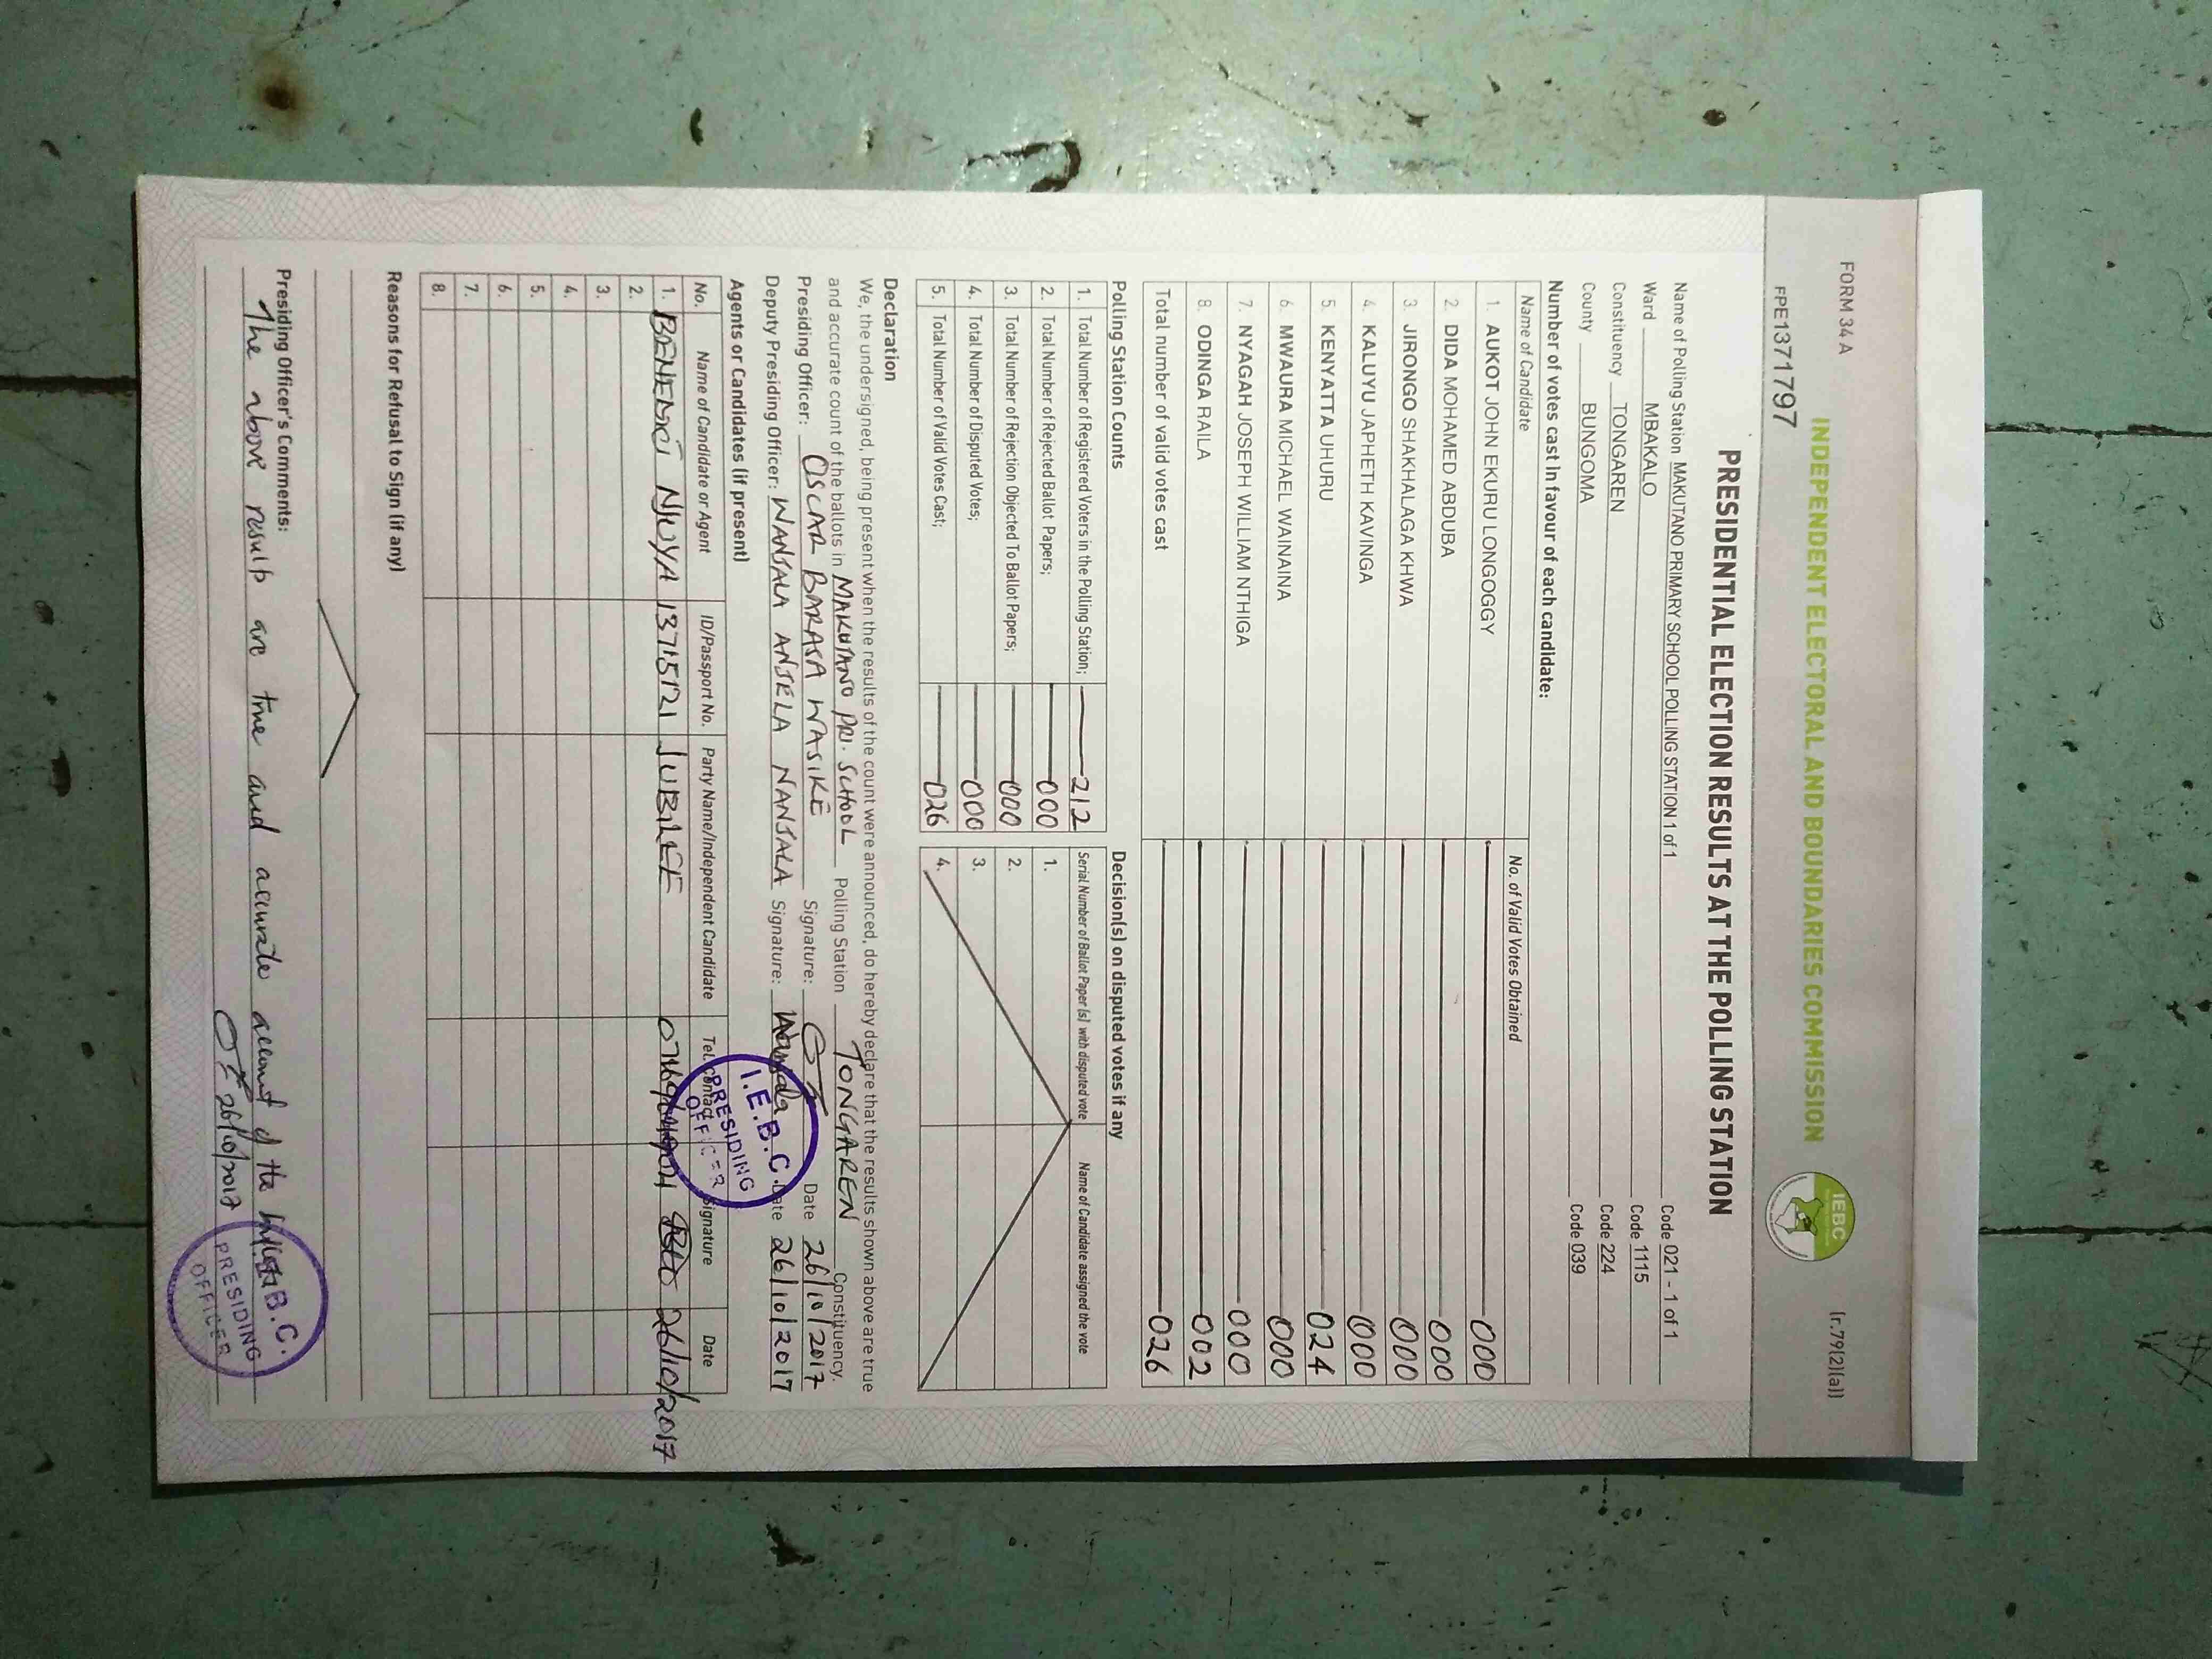 FORM 34 A
(r.79(2)(a))
INDEPENDENT ELECTORAL AND BOUNDARIES COMMISSION
IEBC
FPE1371797
PRESIDENTIAL ELECTION RESULTS AT THE POLLING STATION
Name of Polling Station MAKUTANO PRIMARY SCHOOL POLLING STATION 1 of 1 Code 021 - 1 of 1
Ward MBAKALO Code 1115
Constituency TONGAREN Code 224
County BUNGOMA Code 039
Number of votes cast in favour of each candidate:
Name of Candidate No. of Valid Votes Obtained
1. AUKOT JOHN EKURU LONGOGGY 000
2. DIDA MOHAMED ABDUBA 000
3. JIRONGO SHAKHALAGA KHWA 000
4. KALUYU JAPHETH KAVINGA 000
5. KENYATTA UHURU 024
6. MWAURA MICHAEL WAINAINA 000
7. NYAGAH JOSEPH WILLIAM NTHIGA 000
8. ODINGA RAILA 002
Total number of valid votes cast 026
Polling Station Counts
1. Total Number of Registered Voters in the Polling Station; 212
2. Total Number of Rejected Ballot Papers; 000
3. Total Number of Rejection Objected To Ballot Papers; 000
4. Total Number of Disputed Votes; 000
5. Total Number of Valid Votes Cast; 026
Decision(s) on disputed votes if any
Serial Number of Ballot Paper (s) with disputed vote Name of Candidate assigned the vote
1.
2.
3.
4.
Declaration
We, the undersigned, being present when the results of the count were announced, do hereby declare that the results shown above are true
and accurate count of the ballots in MAKUTANO PRI. SCHOOL Polling Station TONGAREN Constituency.
Presiding Officer: OSCAR BARASA WASIKE Signature: Date 26/10/2017
Deputy Presiding Officer: WANJALA ANJELA NANJALA Signature: Date 26/10/2017
I.E.B.C.
PRESIDING
OFFICER
Agents or Candidates (if present)
No. Name of Candidate or Agent ID/Passport No. Party Name/Independent Candidate Tel. Contact Signature Date
1. NJUYA 13715121 JUBILEE 26/10/2017
2.
3.
4.
5.
6.
7.
8.
Reasons for Refusal to Sign (if any)
Presiding Officer's Comments:
The above result are true and accurate account of the
26/10/2017
B.C.
PRESIDING
OFFICER